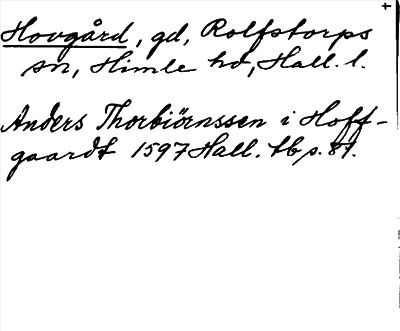 +
Hovgård, gd, Rolfstorps
sn, Himle hd, Hall. l.
Anders Thorbiörnssen i Hoff-
gaardt 1597 Hall. tb s. 81.